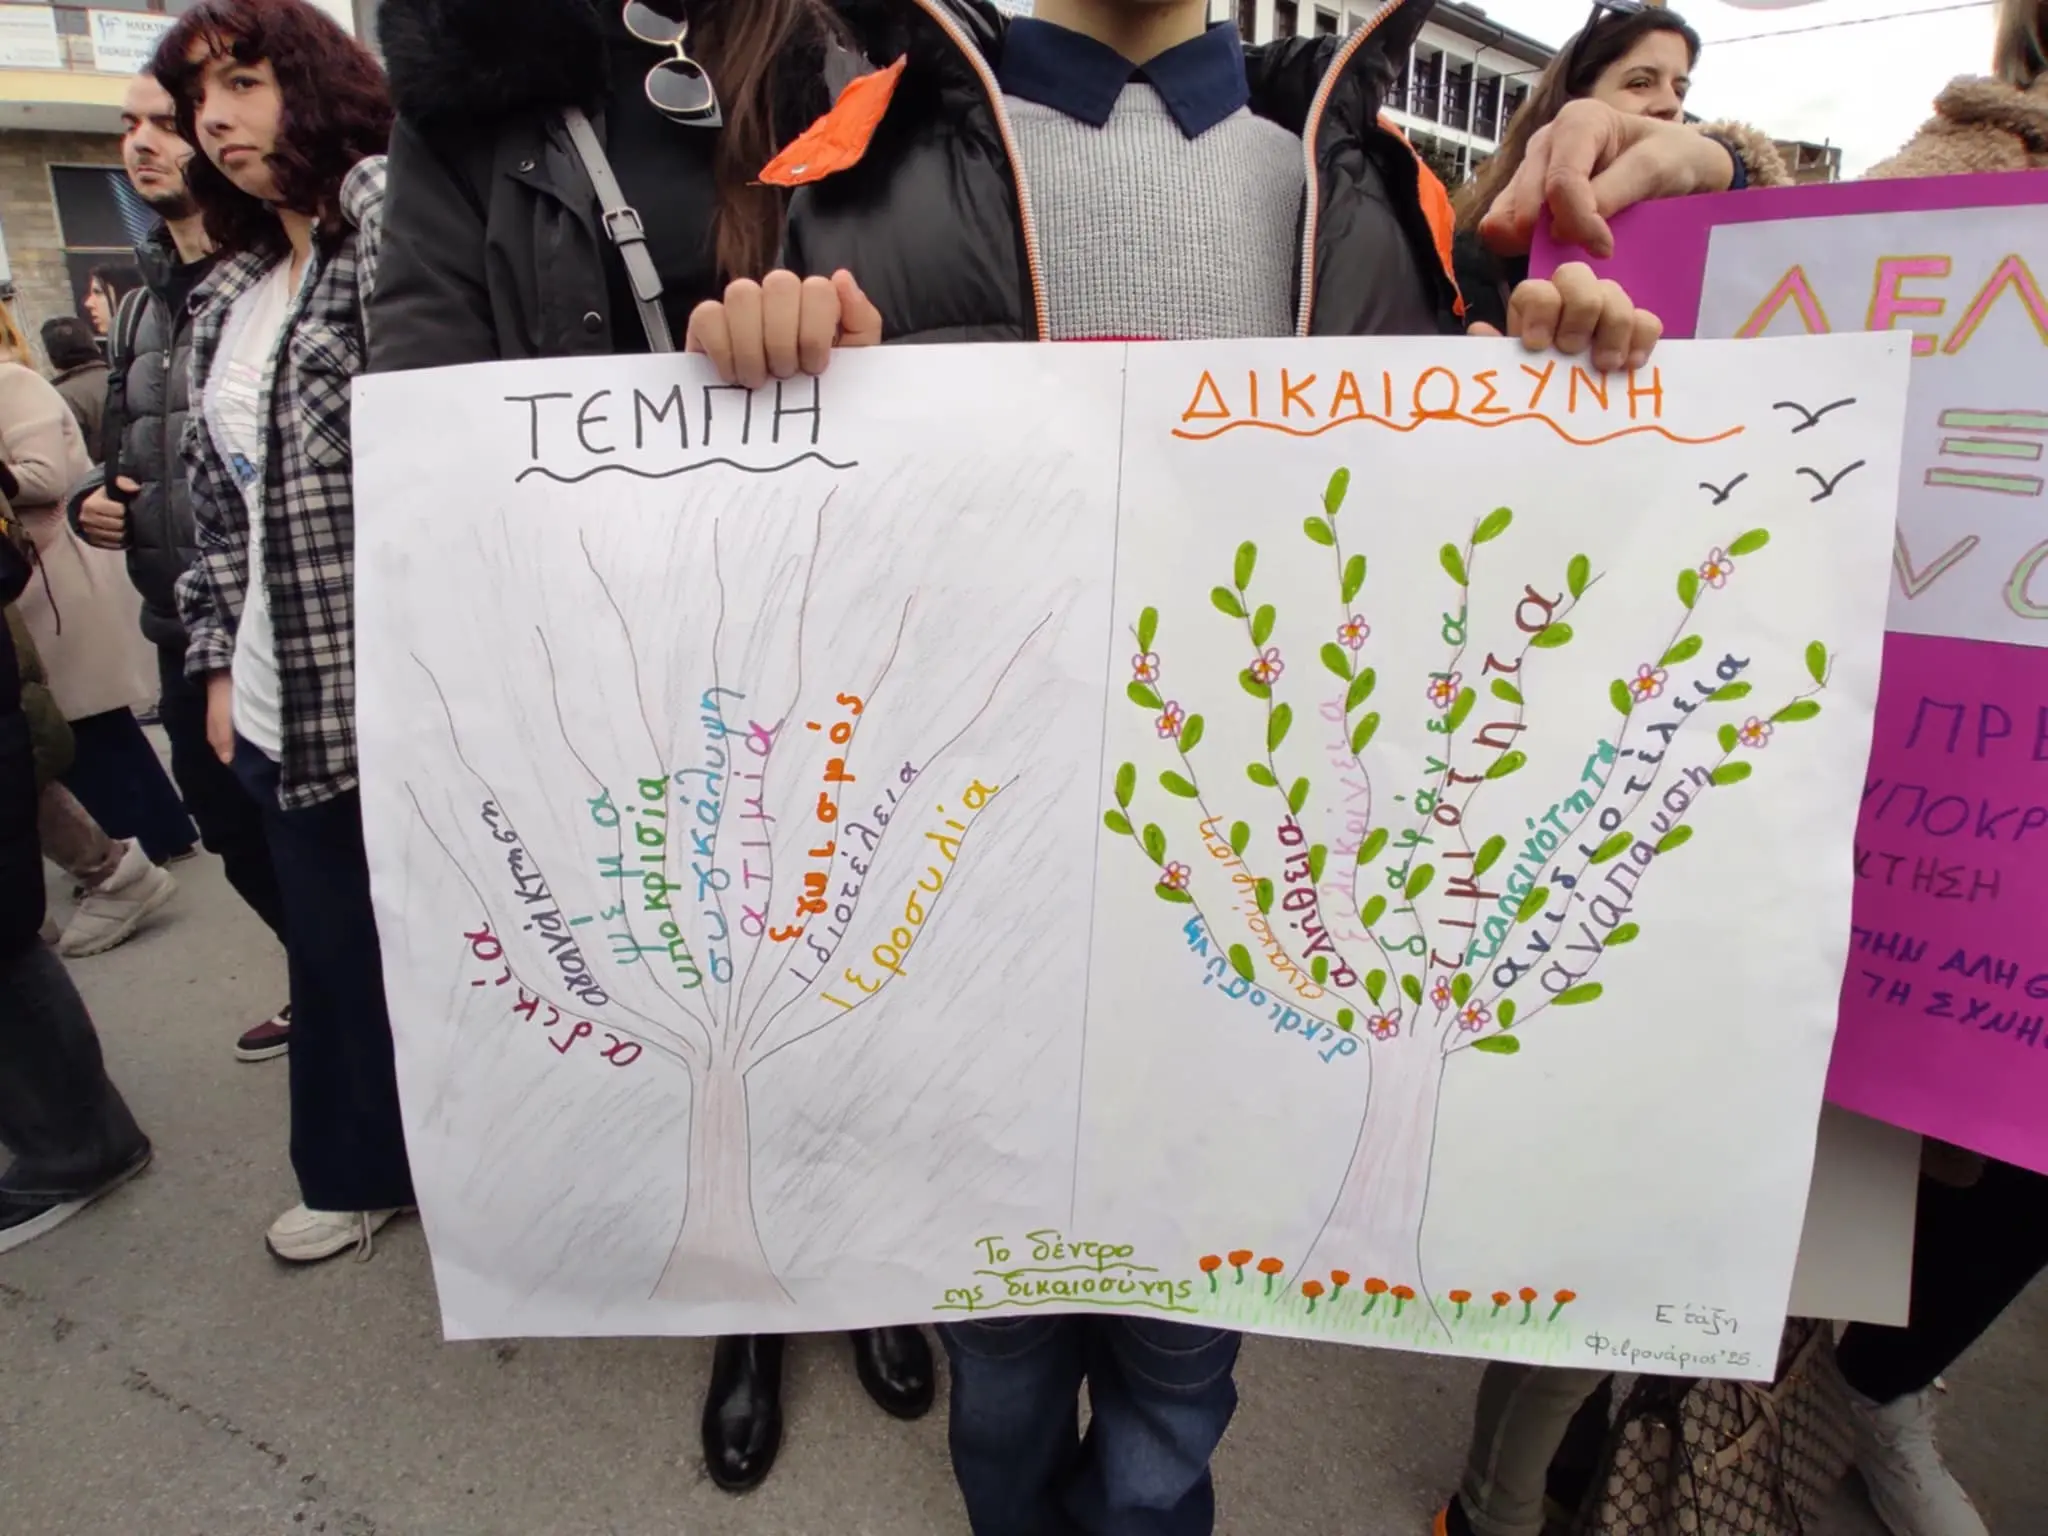 ΗΛΕΚΤΡ
ΤΕΜΠΗ
αδικία
αγανάκτηση
ψέμα
υποκρισία
συγκάλυψη
ατιμία
εγωισμός
ιδιοτέλεια
ιεροσυλία
ΔΙΚΑΙΟΣΥΝΗ
δικαιοσύνη
ανακούφιση
αλήθεια
ειλικρίνεια
διαφάνεια
τιμιότητα
ταπεινότητα
ανιδιοτέλεια
ανάπαυση
Το δέντρο
της δικαιοσύνης
Ε' τάξη
Φεβρουάριος '25
ΔΕΛ
ΠΡΕ
ΥΠΟΚΡ
ΚΤΗΣΗ
ΤΗΝ ΑΛΗΘ
ΤΗ ΣΥΝΗ